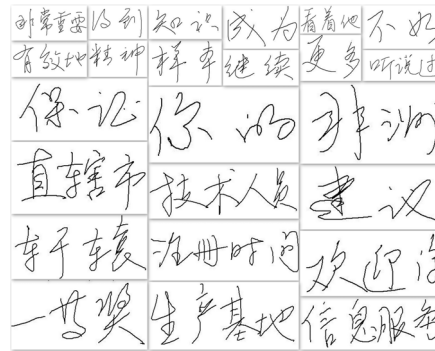 非常重要 得到 知识 成为 看着他 不如
有效地 精神 样本 继续 更多 听说过
保证 你的 非洲
直辖市 技术人员 建议
车干 车袁 注册时间 欢迎
一等奖 生产基地 信息服务